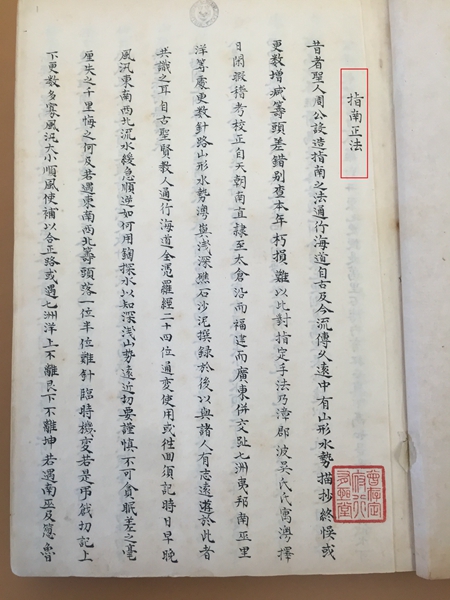 指南正法
昔者聖人周公設造指南之法通行海道自古及今流傳久遠中有山形水勢描抄終悮或
更数增减籌頭差錯别查本年朽損難以比對指定手法乃漳郡波吳氏氏寓澳擇
日閑暇稽考校正自天朝南直隸至太倉沿而福建而廣東併交趾七洲夷邦南巫里
洋等處更数針路山形水勢澳與浅深礁石沙泥撰録於後以與諸人有志遠遊於此者
共識之耳自古聖賢教人通行海道全憑羅經二十四位通變使用或往回須記時日早晚
風汛東南西北流水緩急順逆如何用鉤探水以知深浅山勢遠近切要謹慎不可貪眠差之毫
厘失之千里悔之何及若遇東南西北籌頭落一位半位難針臨時機變若是吊戧切記上
下更数多寡風汛大小順風使補以合正路或遇七洲洋上不離艮下不離坤若遇南巫及忽魯